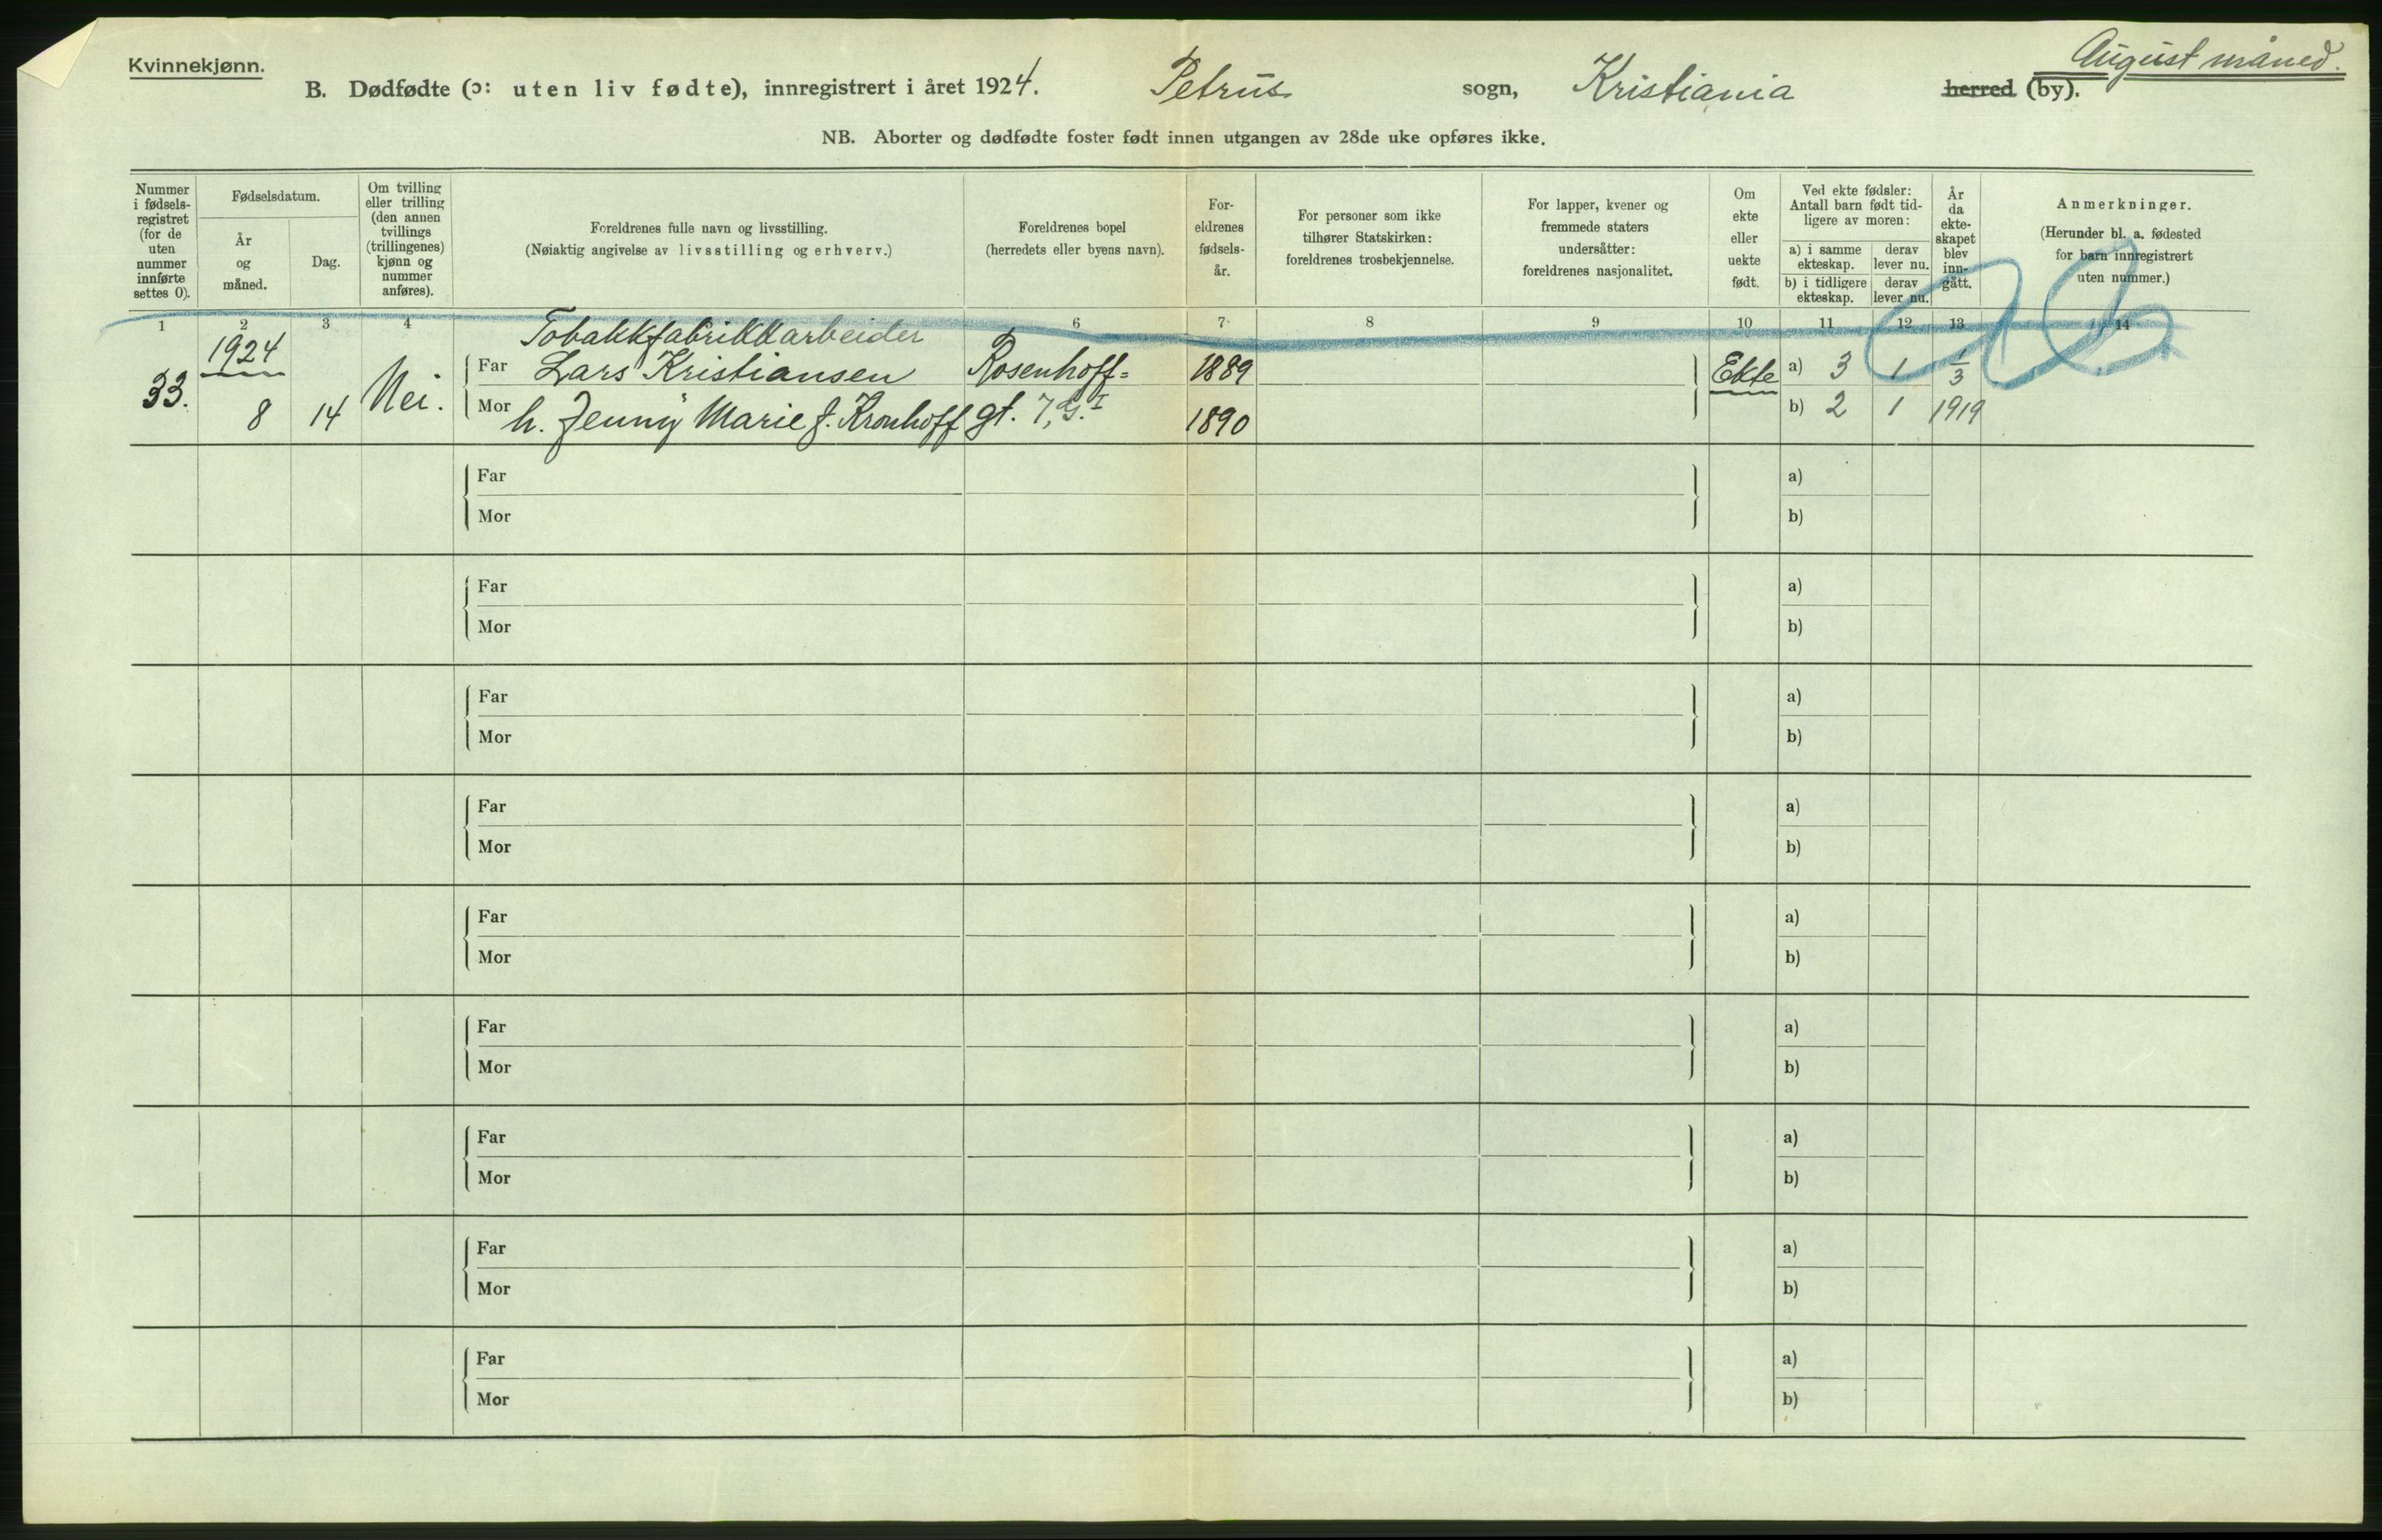 Kvinnekjønn.
August måned.
B. Dødfødte (ɔ: uten liv fødte), innregistrert i året 1924. Petrus sogn, Kristiania herred (by).
NB. Aborter og dødfødte foster født innen utgangen av 28de uke opføres ikke.
Nummer
i fødsels-
registret
(for de
uten
nummer
innførte
settes 0).
Fødselsdatum.
År
og
måned.
Dag.
Om tvilling
eller trilling
(den annen
tvillings
(trillingenes)
kjønn og
nummer
anføres).
Foreldrenes fulle navn og livsstilling.
(Nøiaktig angivelse av livsstilling og erhverv.)
Foreldrenes bopel
(herredets eller byens navn).
For-
eldrenes
fødsels-
år.
For personer som ikke
tilhører Statskirken:
foreldrenes trosbekjennelse.
For lapper, kvener og
fremmede staters
undersåtter:
foreldrenes nasjonalitet.
Om
ekte
eller
uekte
født.
Ved ekte fødsler:
Antall barn født tid-
ligere av moren:
a) i samme
ekteskap.
derav
lever nu.
b) i tidligere
ekteskap.
derav
lever nu.
År
da
ekte-
skapet
blev
inn-
gått.
Anmerkninger.
(Herunder bl. a. fødested
for barn innregistrert
uten nummer.)
1 2 3 4 6 7 8 9 10 11 12 13 14
Tobakkfabrikkarbeider
1924
Far Lars Kristiansen Rosenhoff= 1889 Ekte a) 3 1 1/3
33. 8 14 Nei. Mor h. Jenny Marie f. Kronhoff gt. 7, 1890 b) 2 1 1919
Far a)
Mor b)
Far a)
Mor b)
Far a)
Mor b)
Far a)
Mor b)
Far a)
Mor b)
Far a)
Mor b)
Far a)
Mor b)
Far a)
Mor b)
Far a)
Mor b)